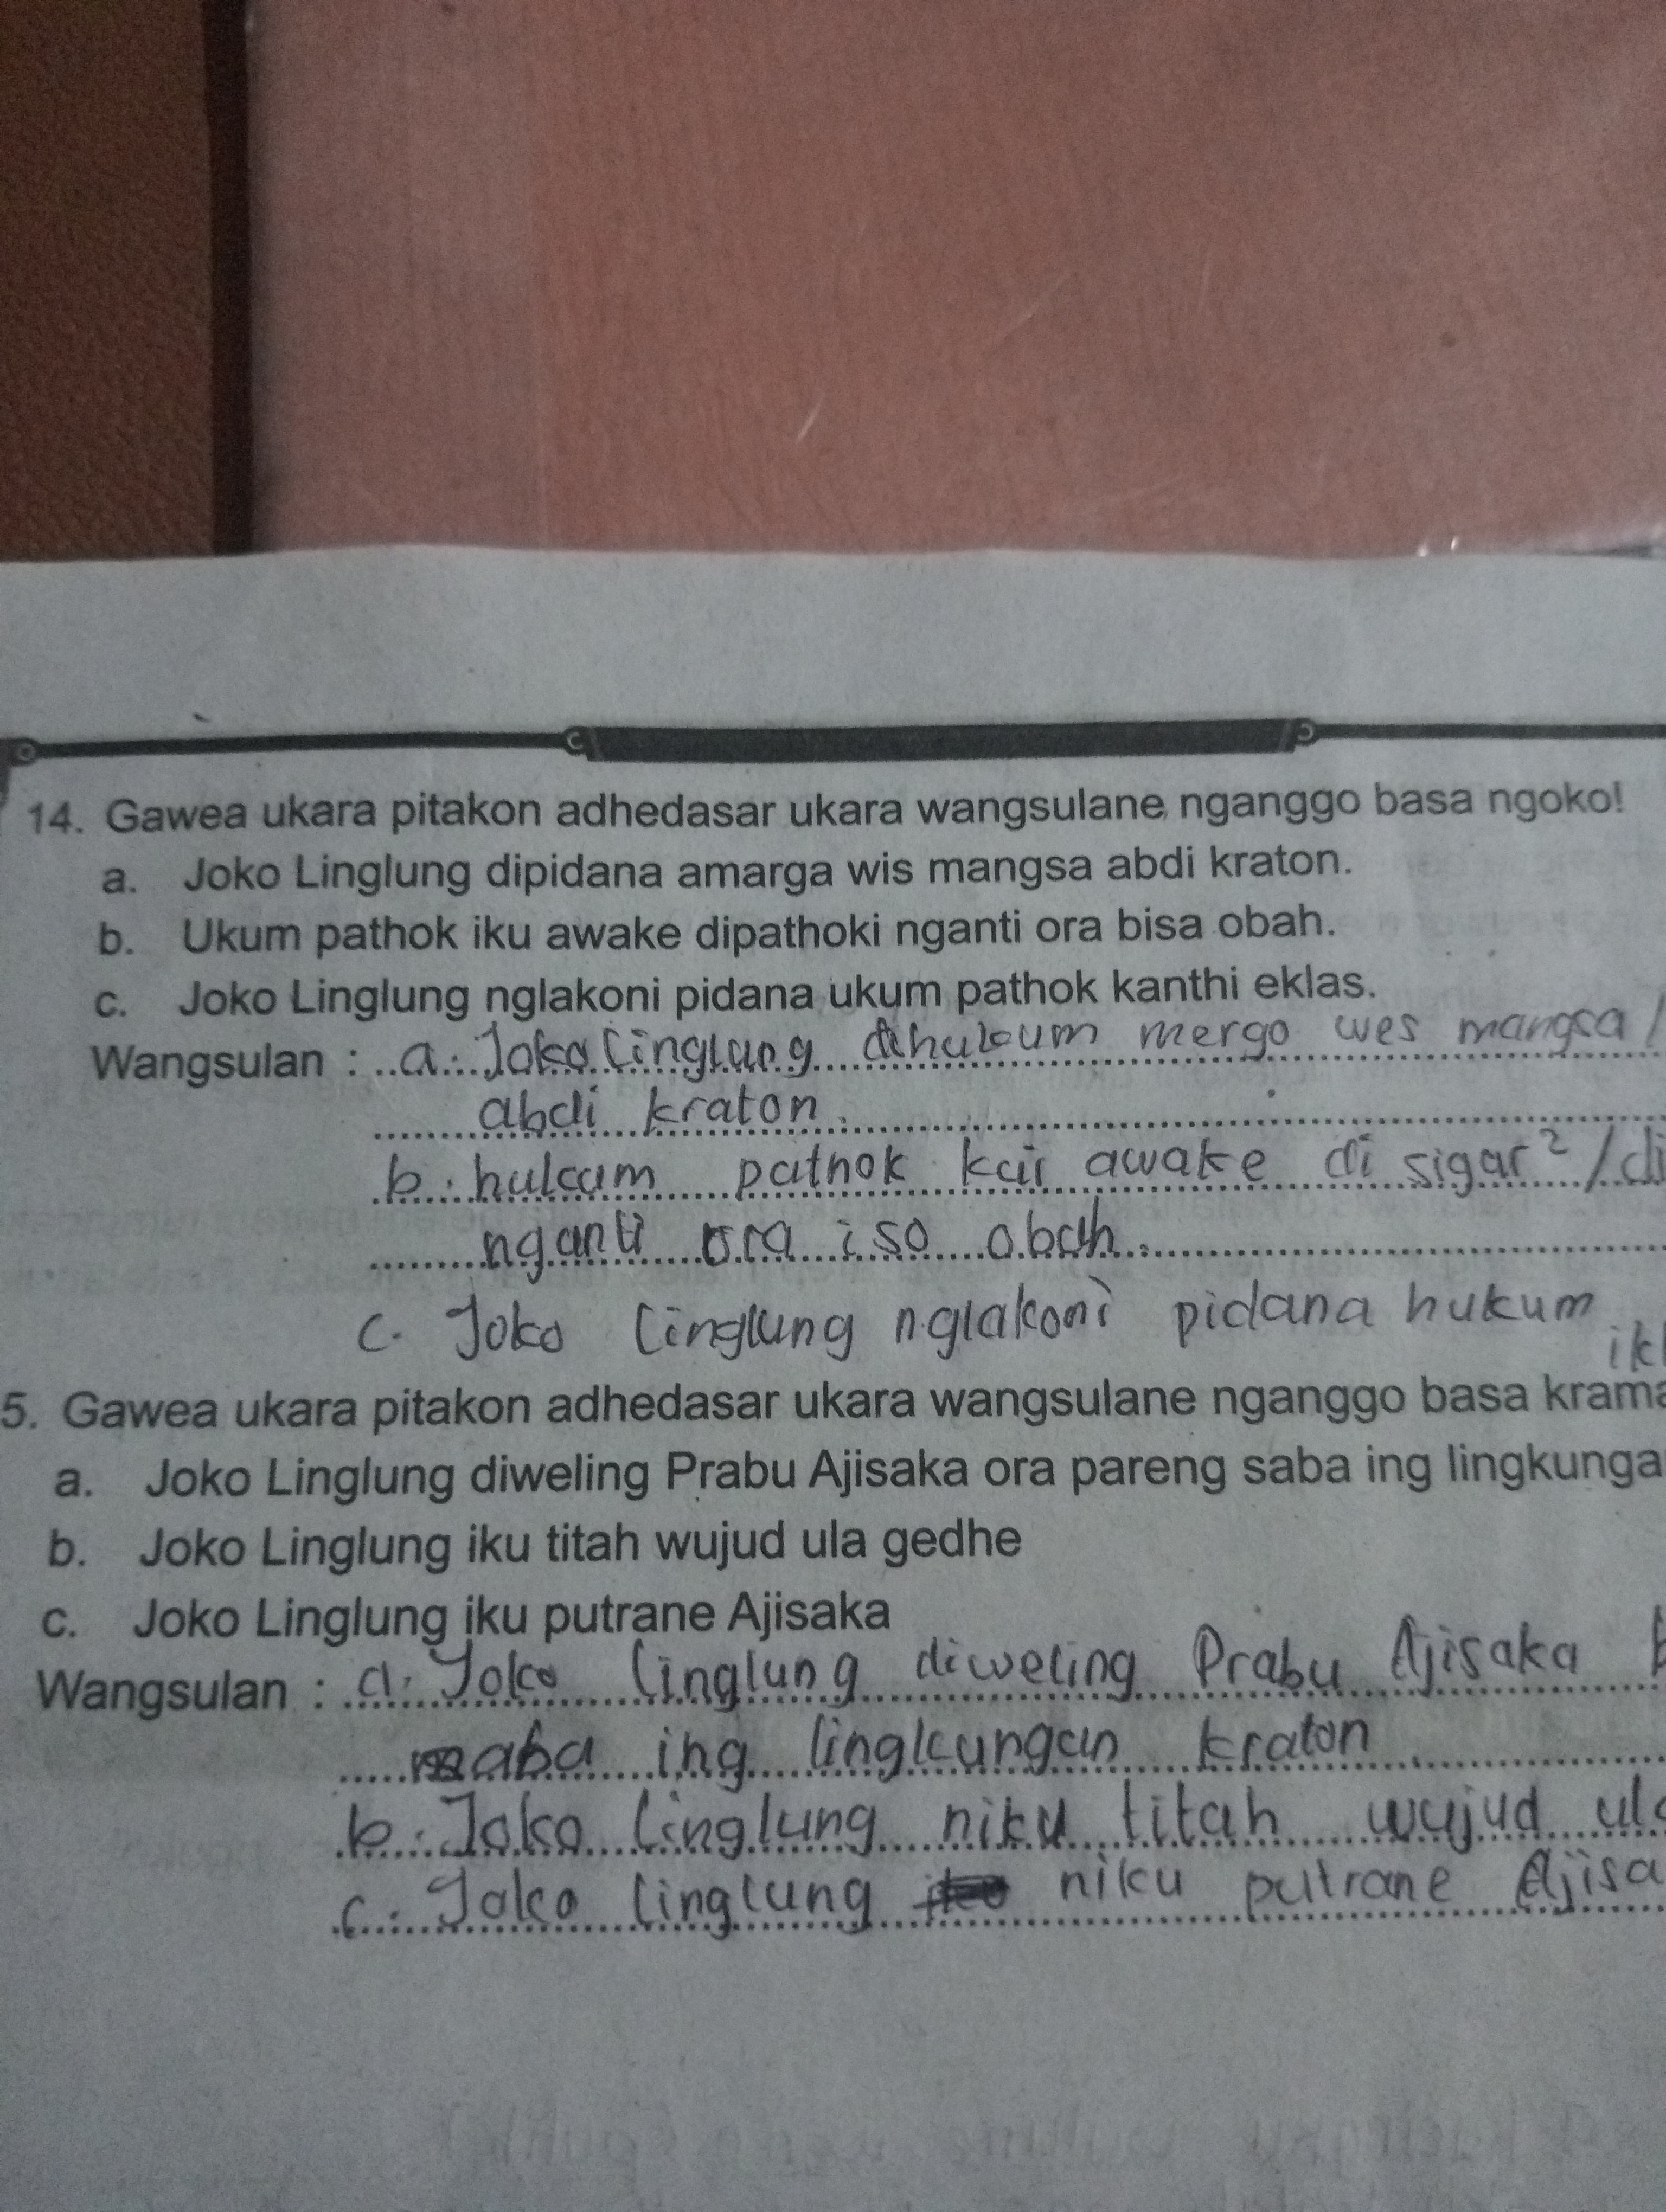 14. Gawea ukara pitakon adhedasar ukara wangsulane nganggo basa ngoko!
a. Joko Linglung dipidana amarga wis mangsa abdi kraton.
b. Ukum pathok iku awake dipathoki nganti ora bisa obah.
c. Joko Linglung nglakoni pidana ukum pathok kanthi eklas.
Wangsulan : a. Joko linglung dihukum mergo wes mangsa /
abdi kraton.
b. hukum pathok kui awake di sigar² / di
nganti ora iso obah.
c. Joko linglung nglakoni pidana hukum
ikl
5. Gawea ukara pitakon adhedasar ukara wangsulane nganggo basa krama
a. Joko Linglung diweling Prabu Ajisaka ora pareng saba ing lingkunga
b. Joko Linglung iku titah wujud ula gedhe
c. Joko Linglung iku putrane Ajisaka
Wangsulan : a. Joko linglung diweling Prabu Ajisaka
ing lingkungan kraton
b. Joko linglung niku titah wujud ula
c. Joko linglung niku putrane Ajisa